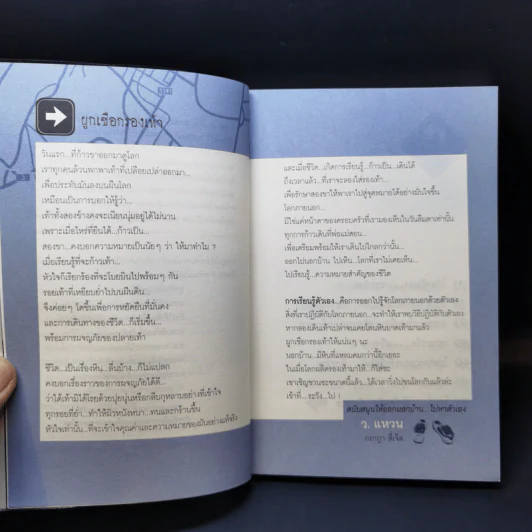 ผูกเชือกรองเท้า
วันแรก...ที่ก้าวขาออกมาดูโลก
เราทุกคนล้วนพกพาเท้าที่เปลือยเปล่าออกมา...
เพื่อประทับมันลงบนผืนโลก
เหมือนเป็นการบอกให้รู้ว่า...
เท้าทั้งสองข้างคงจะเนียนนุ่มอยู่ได้ไม่นาน
เพราะเมื่อไหร่ที่ยืนได้...ก้าวเป็น...
สองขา...คงบอกความหมายเป็นนัยๆ ว่า ให้มาทำไม ?
เมื่อเรียนรู้ที่จะก้าวเท้า...
หัวใจก็เรียกร้องที่จะโบยบินไปพร้อมๆ กัน
รอยเท้าที่เหยียบย่ำไปบนผืนดิน...
จึงค่อยๆ โตขึ้นเพื่อการหยัดยืนที่มั่นคง
และการเดินทางของชีวิต...ก็เริ่มขึ้น...
พร้อมการผจญภัยของปลายเท้า
ชีวิต...เป็นเรื่องหิน...ลื่นบ้าง...ก็ไม่แปลก
คงบอกเรื่องราวของการผจญภัยได้ดี...
ว่าใต้เท้ามิได้โรยด้วยปุยนุ่นหรือกลีบกุหลาบอย่างที่เข้าใจ
ทุกรอยที่ย่ำ...ทำให้ผิวหนังหนา...ทนและกร้านขึ้น
หัวใจเท่านั้น...ที่จะเข้าใจคุณค่าและความหมายของมันอย่างแท้จริง
และเมื่อชีวิต...เกิดการเรียนรู้...ก้าวเป็น...เดินได้
ถึงเวลาแล้ว...ที่เราจะลองใส่รองเท้า...
เพื่อรักษาสองขาให้พาเราไปสู่จุดหมายได้อย่างมั่นใจขึ้น
โลกภายนอก...
มิใช่แค่หน้าตาของครอบครัวที่เรามองเห็นในวันลืมตาเท่านั้น
ทุกการก้าวเดินที่พ่อแม่สอน...
เพื่อเตรียมพร้อมให้เราเดินไปไกลกว่านั้น...
ออกไปนอกบ้าน ไปเห็น...โลกที่เราไม่เคยเห็น...
ไปเรียนรู้...ความหมายสำคัญของชีวิต
การเรียนรู้ตัวเอง...คือการออกไปรู้จักโลกภายนอกด้วยตัวเอง
สิ่งที่เราปฏิบัติกับโลกภายนอก...จะทำให้เราพบวิธีปฏิบัติกับตัวเอง
หากลองเดินเท้าเปล่าจนเคยโดนหินบาดเท้ามาแล้ว
ผูกเชือกรองเท้าให้แน่นๆ นะ
นอกบ้าน...มีหินที่แหลมคมกว่านี้อีกเยอะ
ในเมื่อโลกผลิตรองเท้ามาให้...ก็ใส่ซะ
เท้าที่...ระวัง...ไป !
สนับสนุนให้ออกนอกบ้าน...ไปหาตัวเอง
ว. แหวน